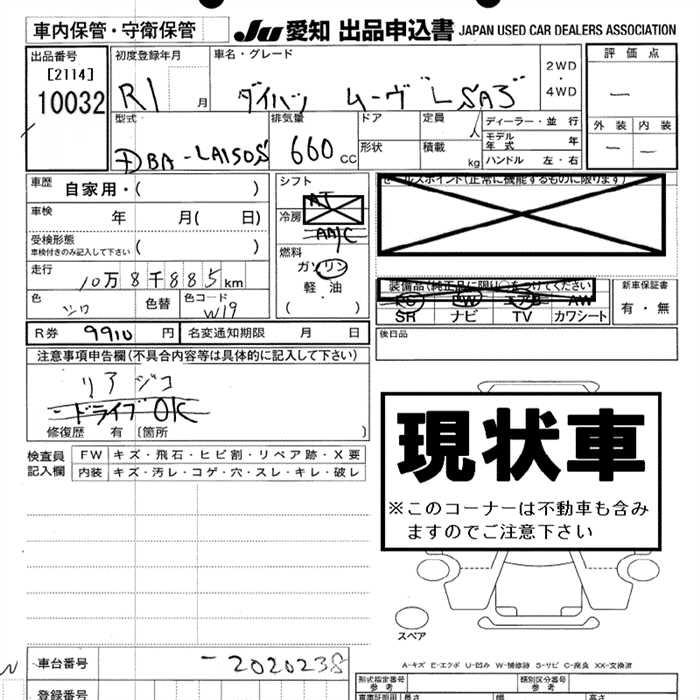 車内保管・守衛保管
Ju愛知 出品申込書 JAPAN USED CAR DEALERS ASSOCIATION
出品番号
[2114]
10032
初度登録年月
R1 月
車名・グレード
ダイハツ ムーヴ "L SAⅢ"
2WD
・
4WD
評価点
―
外装 内装
― ―
型式
DBA-LA150S
排気量
660 CC
ドア
形状
定員 人
積載 kg
ディーラー・並行
モデル年式 年
ハンドル 左・右
車歴 自家用・( )
車検 年 月( 日)
受検形態
車検付きのみ記入して下さい ( )
走行 10万8千885km
色 シロ 色替 色コード W19
R券 9910 円 名変通知期限 月 日
シフト
AT
冷房
AA/C
燃料
ガソリン
軽・油
( )
セールスポイント(正常に機能するものに限ります)
装備品(純正品に限り○をつけてください
PS PW エアB AW
SR ナビ TV カワシート
新車保証書
有・無
後日品
注意事項申告欄(不具合内容等は具体的に記入して下さい)
リアジコ
ドライブOK
修復歴 有 [箇所 ]
検査員記入欄
FW キズ・飛石・ヒビ割・リペア跡・X要
内装 キズ・汚レ・コゲ・穴・スレ・キレ・破レ
現状車
※このコーナーは不動車も含み
ますのでご注意下さい
スペア
A-キズ E-エクボ U-凹み W-補修跡 S-サビ C-腐食 XX-交換済
車台番号 -2020238
登録番号
型式指定番号
参考
類別区分番号
参考
長さ 幅 高さ